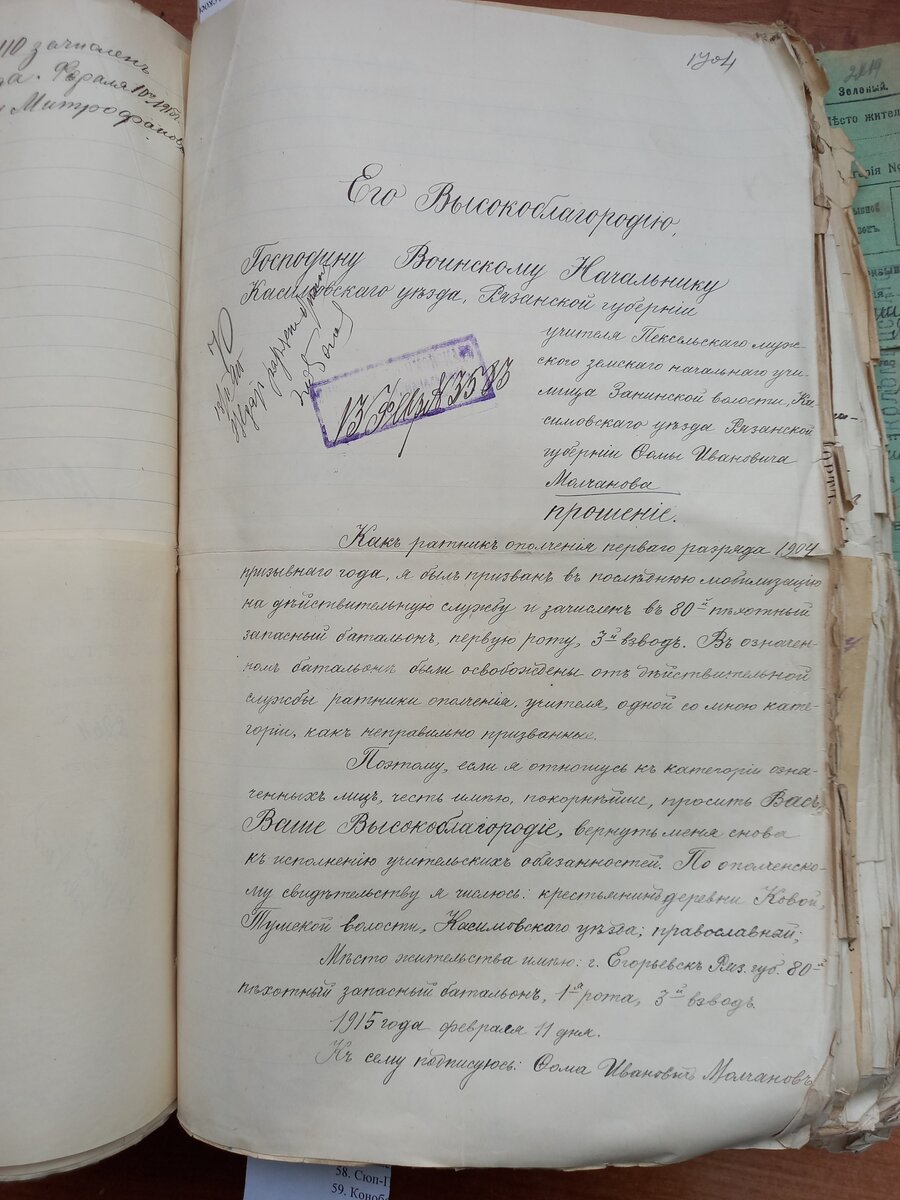 110 зачисленъ
Февраля 10го 1915г.
Митрофановъ
1704
Его Высокоблагородію,
Господину Воинскому Начальнику
Касимовскаго уѣзда, Рязанской губерніи
учителя Пексельскаго муж-
ского земскаго начальнаго учи-
лища Занинской волости, Ка-
симовскаго уѣзда Рязанской
губерніи Ѳомы Ивановича
Молчанова
прошеніе.
13 3583
Какъ ратникъ ополченія перваго разряда 1904
призывнаго года, я былъ призванъ въ послѣднюю мобилизацію
на дѣйствительную службу и зачисленъ въ 80-й пѣхотный
запасный батальонъ, первую роту, 3й взводъ. Въ означен-
номъ батальонѣ были освобождены отъ дѣйствительной
службы ратники ополченія, учителя, одной со мною кате-
горіи, какъ неправильно призванные.
Поэтому, если я отношусь къ категоріи озна-
ченныхъ лицъ, честь имѣю, покорнѣйше, просить Васъ,
Ваше Высокоблагородіе, вернуть меня снова
къ исполненію учительскихъ обязанностей. По ополченско-
му свидѣтельству я числюсь: крестьянинъ деревни Ковой,
Тумской волости, Касимовскаго уѣзда; православный;
Мѣсто жительства имѣю: г. Егорьевскъ Ряз. губ. 80-й
пѣхотный запасный батальонъ, 1-я рота, 3й взводъ.
1915 года февраля 11 дня.
Къ сему подписуюсь: Ѳома Ивановъ Молчановъ
Зеленый.
Мѣсто жител
58. Сюп-
59. Коноб